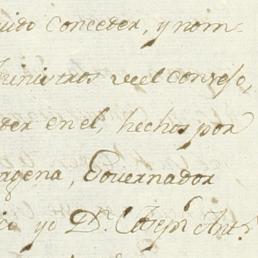 uido conceder, y nom-
inistros del Consejo,
der en el, hechos por
agena, Governador
yo Dn. Joseph Anto